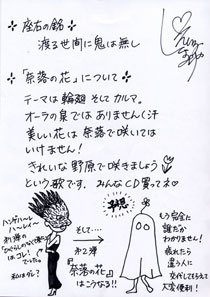 座右の銘
渡る世間に鬼は無し
「奈落の花」について
テーマは輪廻 そして カルマ。
オーラの泉では ありませんく汗
美しい花は 奈落で咲いては
いけません!
きれいな野原で咲きましょう
という歌です。みんなCD買ってネ
ハンゲハ〜レ
ハ〜レイ〜
第1弾の
「ひぐらしのなく頃に」
はコレ!
でした。
私はダレ?
そして…
第2弾
「奈落の花」
はこうなる!!
もう完全に
誰だか
わかりません!
疲れたら
違う人に
交代してもらえて
大変便利!